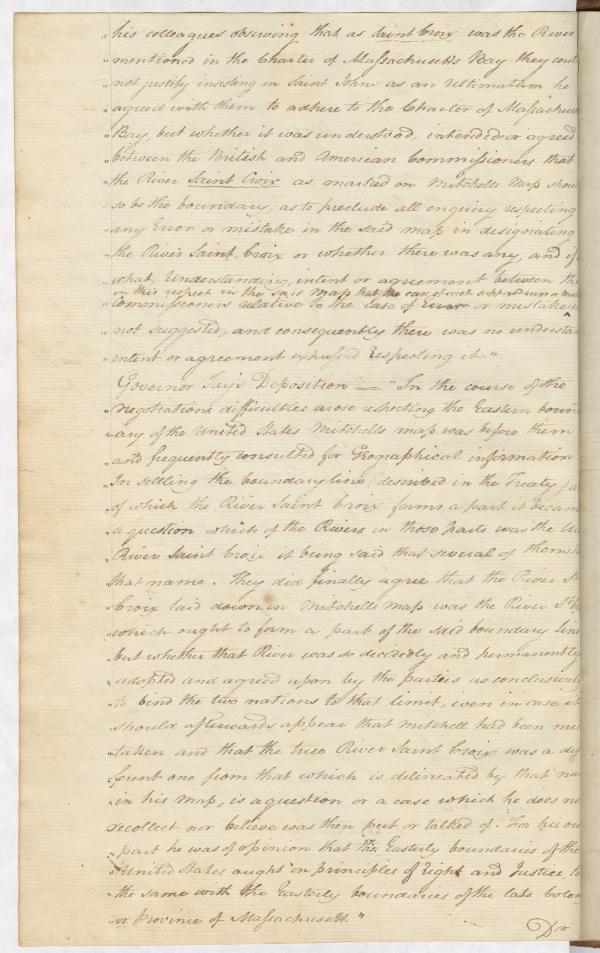 "his colleagues observing that as Saint Croix was the River
"mentioned in the Charter of Massachusetts Bay they coul
"not justify insisting on Saint Johns as an Ultimatum he
"agreed with them to adhere to the Charter of Massachus
"Bay, but whether it was understood, intended or agreed
"between the British and American Commissioners that
"the River Saint Croix as marked on Mitchells Map shou
"so be the boundary, as to preclude all enquiry respecting
"any Error or mistake in the said map in designating
"the River Saint Croix or whether there was any, and if
"what, Understanding, intent or agreement between the
in this respect in the said Map that the case of such
"Commissioners relative to the case of error or mistake
"not suggested, and consequently there was no understan
"intent or agreement expressed respecting it."
Governor Jay's Deposition — "In the course of the
"negotiations difficulties arose respecting the Eastern boun
"ary of the United States Mitchells map was before them
"and frequently consulted for Geographical information
"In settling the boundary line described in the Treaty
"of which the River Saint Croix forms a part it becam
"a question which of the Rivers in those parts was the
"River Saint Croix it being said that several of them
"that name. They did finally agree that the River St
"Croix laid down in Mitchells map was the River St
"which ought to form a part of the said boundary line
"but whether that River was so decidedly and permanently
"adopted and agreed upon by the parties as conclusivel
"to bind the two nations to that limit, even in case it
"should afterwards appear that Mitchell had been mis
"taken and that the true River Saint Croix was a dif
"ferent one from that which is delineated by that na
"in his map, is a question or a case which he does no
"recollect nor believe was then put or talked of. For his ow
"part he was of opinion that the Easterly boundaries of the
"United States ought on principles of Right and Justice to
"the same with the Easterly boundaries of the late Colon
"or Province of Massachusetts."
Dr